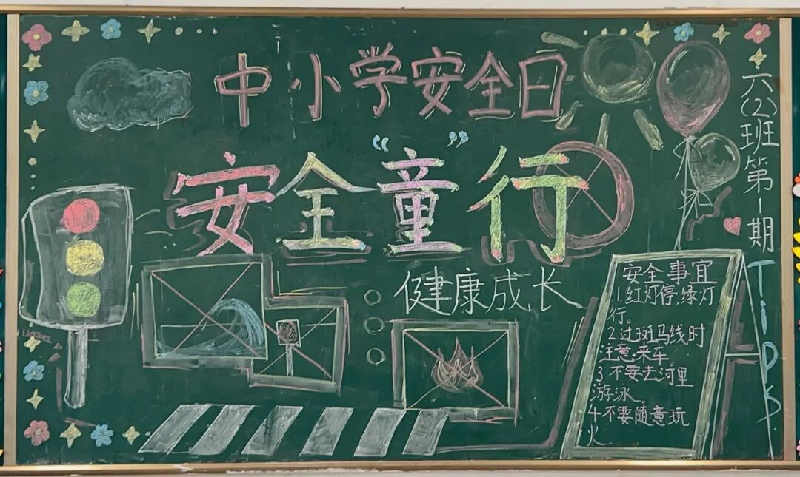 中小学安全日
安全“童”行
健康成长
六(2)班第1期
Tips
安全事宜
1.红灯停绿灯
行。
2.过斑马线时
注意来车。
3.不要去河里
游泳。
4.不要随意玩
火.